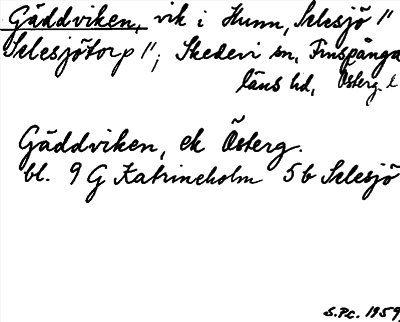 Gäddviken, vik i Hunn, Selesjö //
Selesjötorp //; Skedevi sn, Finspånga
läns hd, Österg. l
Gäddviken, ek Österg.
bl. 9 G Katrineholm 5 b Selesjö
S.Pc. 1959